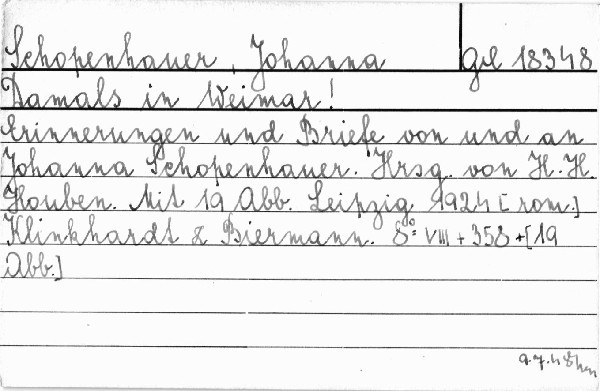 Schopenhauer, Johanna
Gcl 18348
Damals in Weimar!
Erinnerungen und Briefe von und an
Johanna Schopenhauer. Hrsg. von H.H.
Houben. Mit 19 Abb. Leipzig 1924 [rom.]
Klinkhardt & Biermann. 8°: VIII + 358 + [19
Abb.]
9.7.48